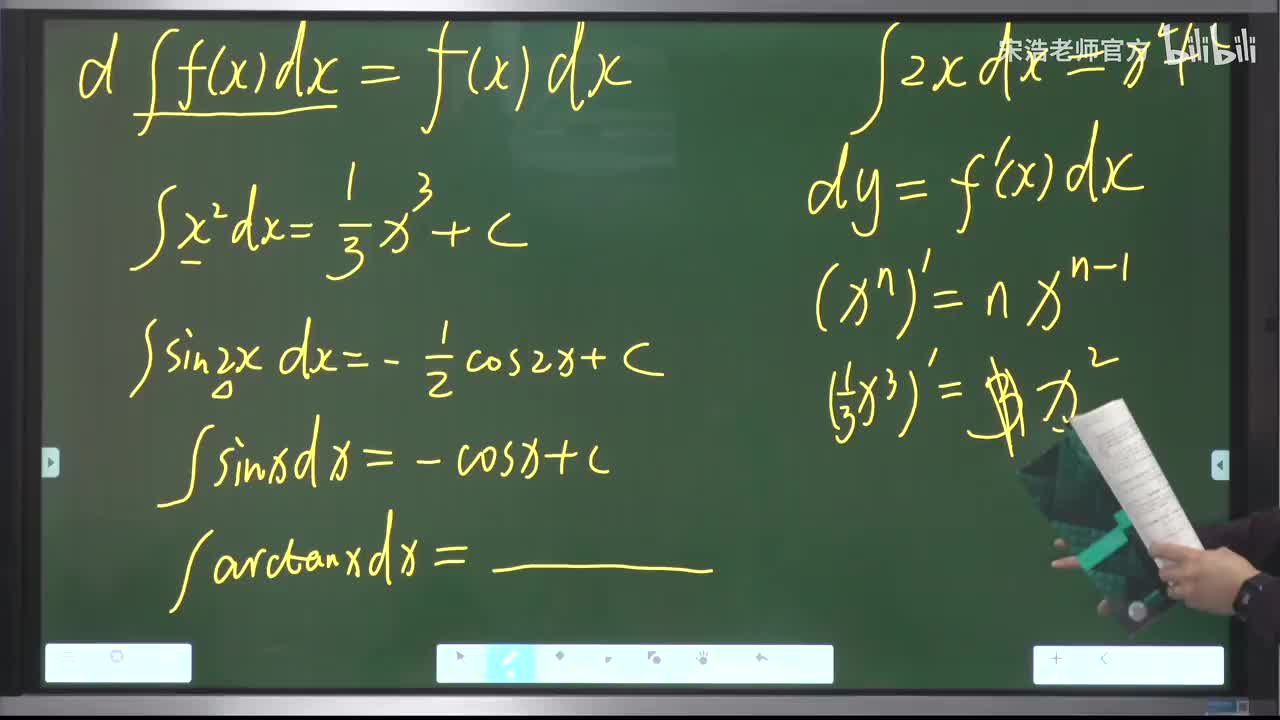 d ∫ f(x) dx = f(x) dx
∫ x² dx = 1/3 x³ + C
∫ sin2x dx = - 1/2 cos2x + C
∫ sinx dx = - cosx + C
∫ arctanx dx = ______
宋浩老师官方 bilibili
∫ 2x dx =
dy = f'(x) dx
(xⁿ)' = n xⁿ⁻¹
(1/3 x³)' = x²